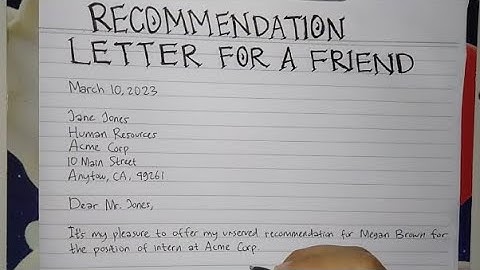 RECOMMENDATION
LETTER FOR A FRIEND
March 10, 2023
Jane Jones
Human Resources
Acme Corp
10 Main Street
Anytow, CA, 49261
Dear Mr. Jones,
It's my pleasure to offer my unserved recommendation for Megan Brown for
the position of intern at Acme Corp.